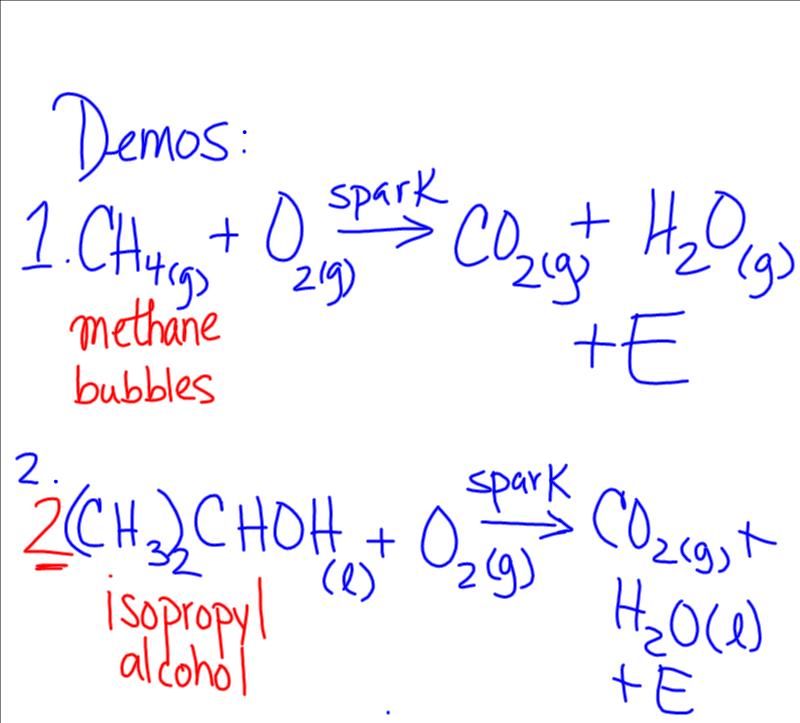 Demos:
1. CH₄(g) + O₂(g) spark → CO₂(g) + H₂O(g)
methane
+E
bubbles
2.
2(CH₃)₂CHOH(l) + O₂(g) spark → CO₂(g) +
isopropyl
H₂O(l)
alcohol
+E